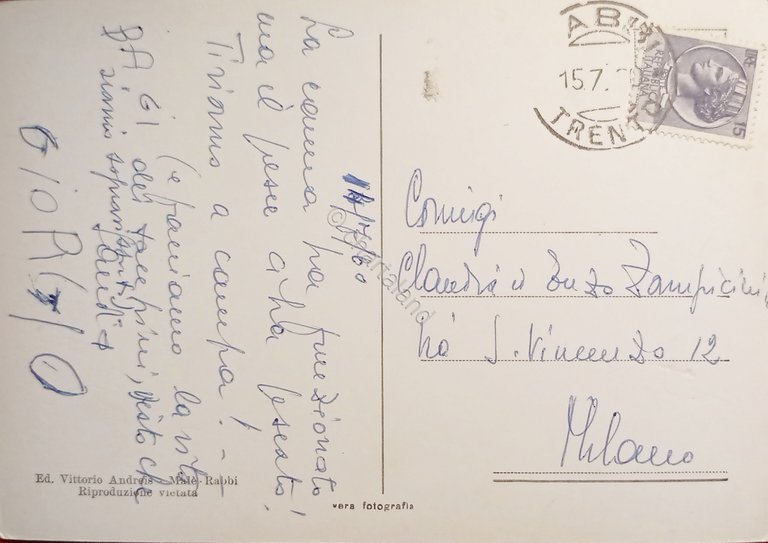 La canna ha funzionato!
ma il pesce ci ha pescato!
Tiriamo a campa! - -
(e facciamo la vita
dei tacchini, visto che
siamo soprannominati
GIORGIO
14/7/60
© Cartaland
RABBI
15.7.
TRENTO
REPUBBLICA ITALIANA
LIRE 15
Coniugi
Claudia e Enzo Zampicini
Via S. Vincenzo 12
Milano
Ed. Vittorio Andreis - Malè-Rabbi
Riproduzione vietata
vera fotografia